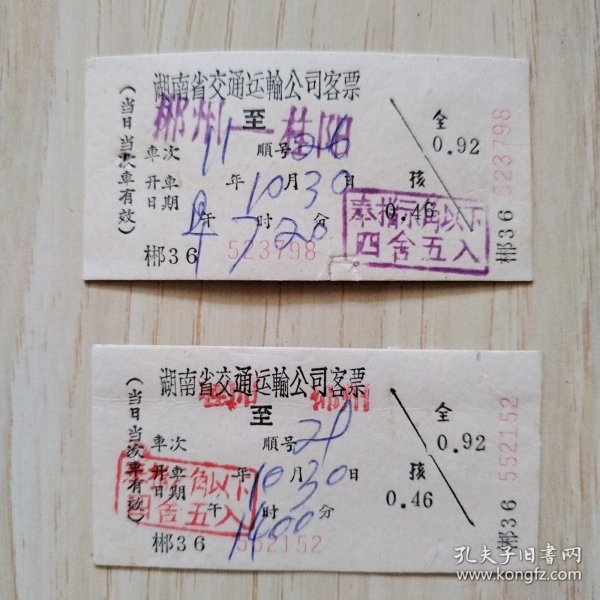 湖南省交通运輸公司客票
郴州 至 桂阳
(当日当次車有效)
車次 11 順号 26
开車日期 年 10 月 30 日
午 7 时 20 分
郴36 523798
全 0.92
孩 0.46
奉指示角以下
四舍五入
郴36 523798
湖南省交通运輸公司客票
桂阳 至 郴州
(当日当次車有效)
車次 順号 21
开車日期 年 10 月 30 日
午 1400 时 分
郴36 552152
全 0.92
孩 0.46
奉指示角以下
四舍五入
郴36 552152
孔夫子旧书网
www.kongfz.com